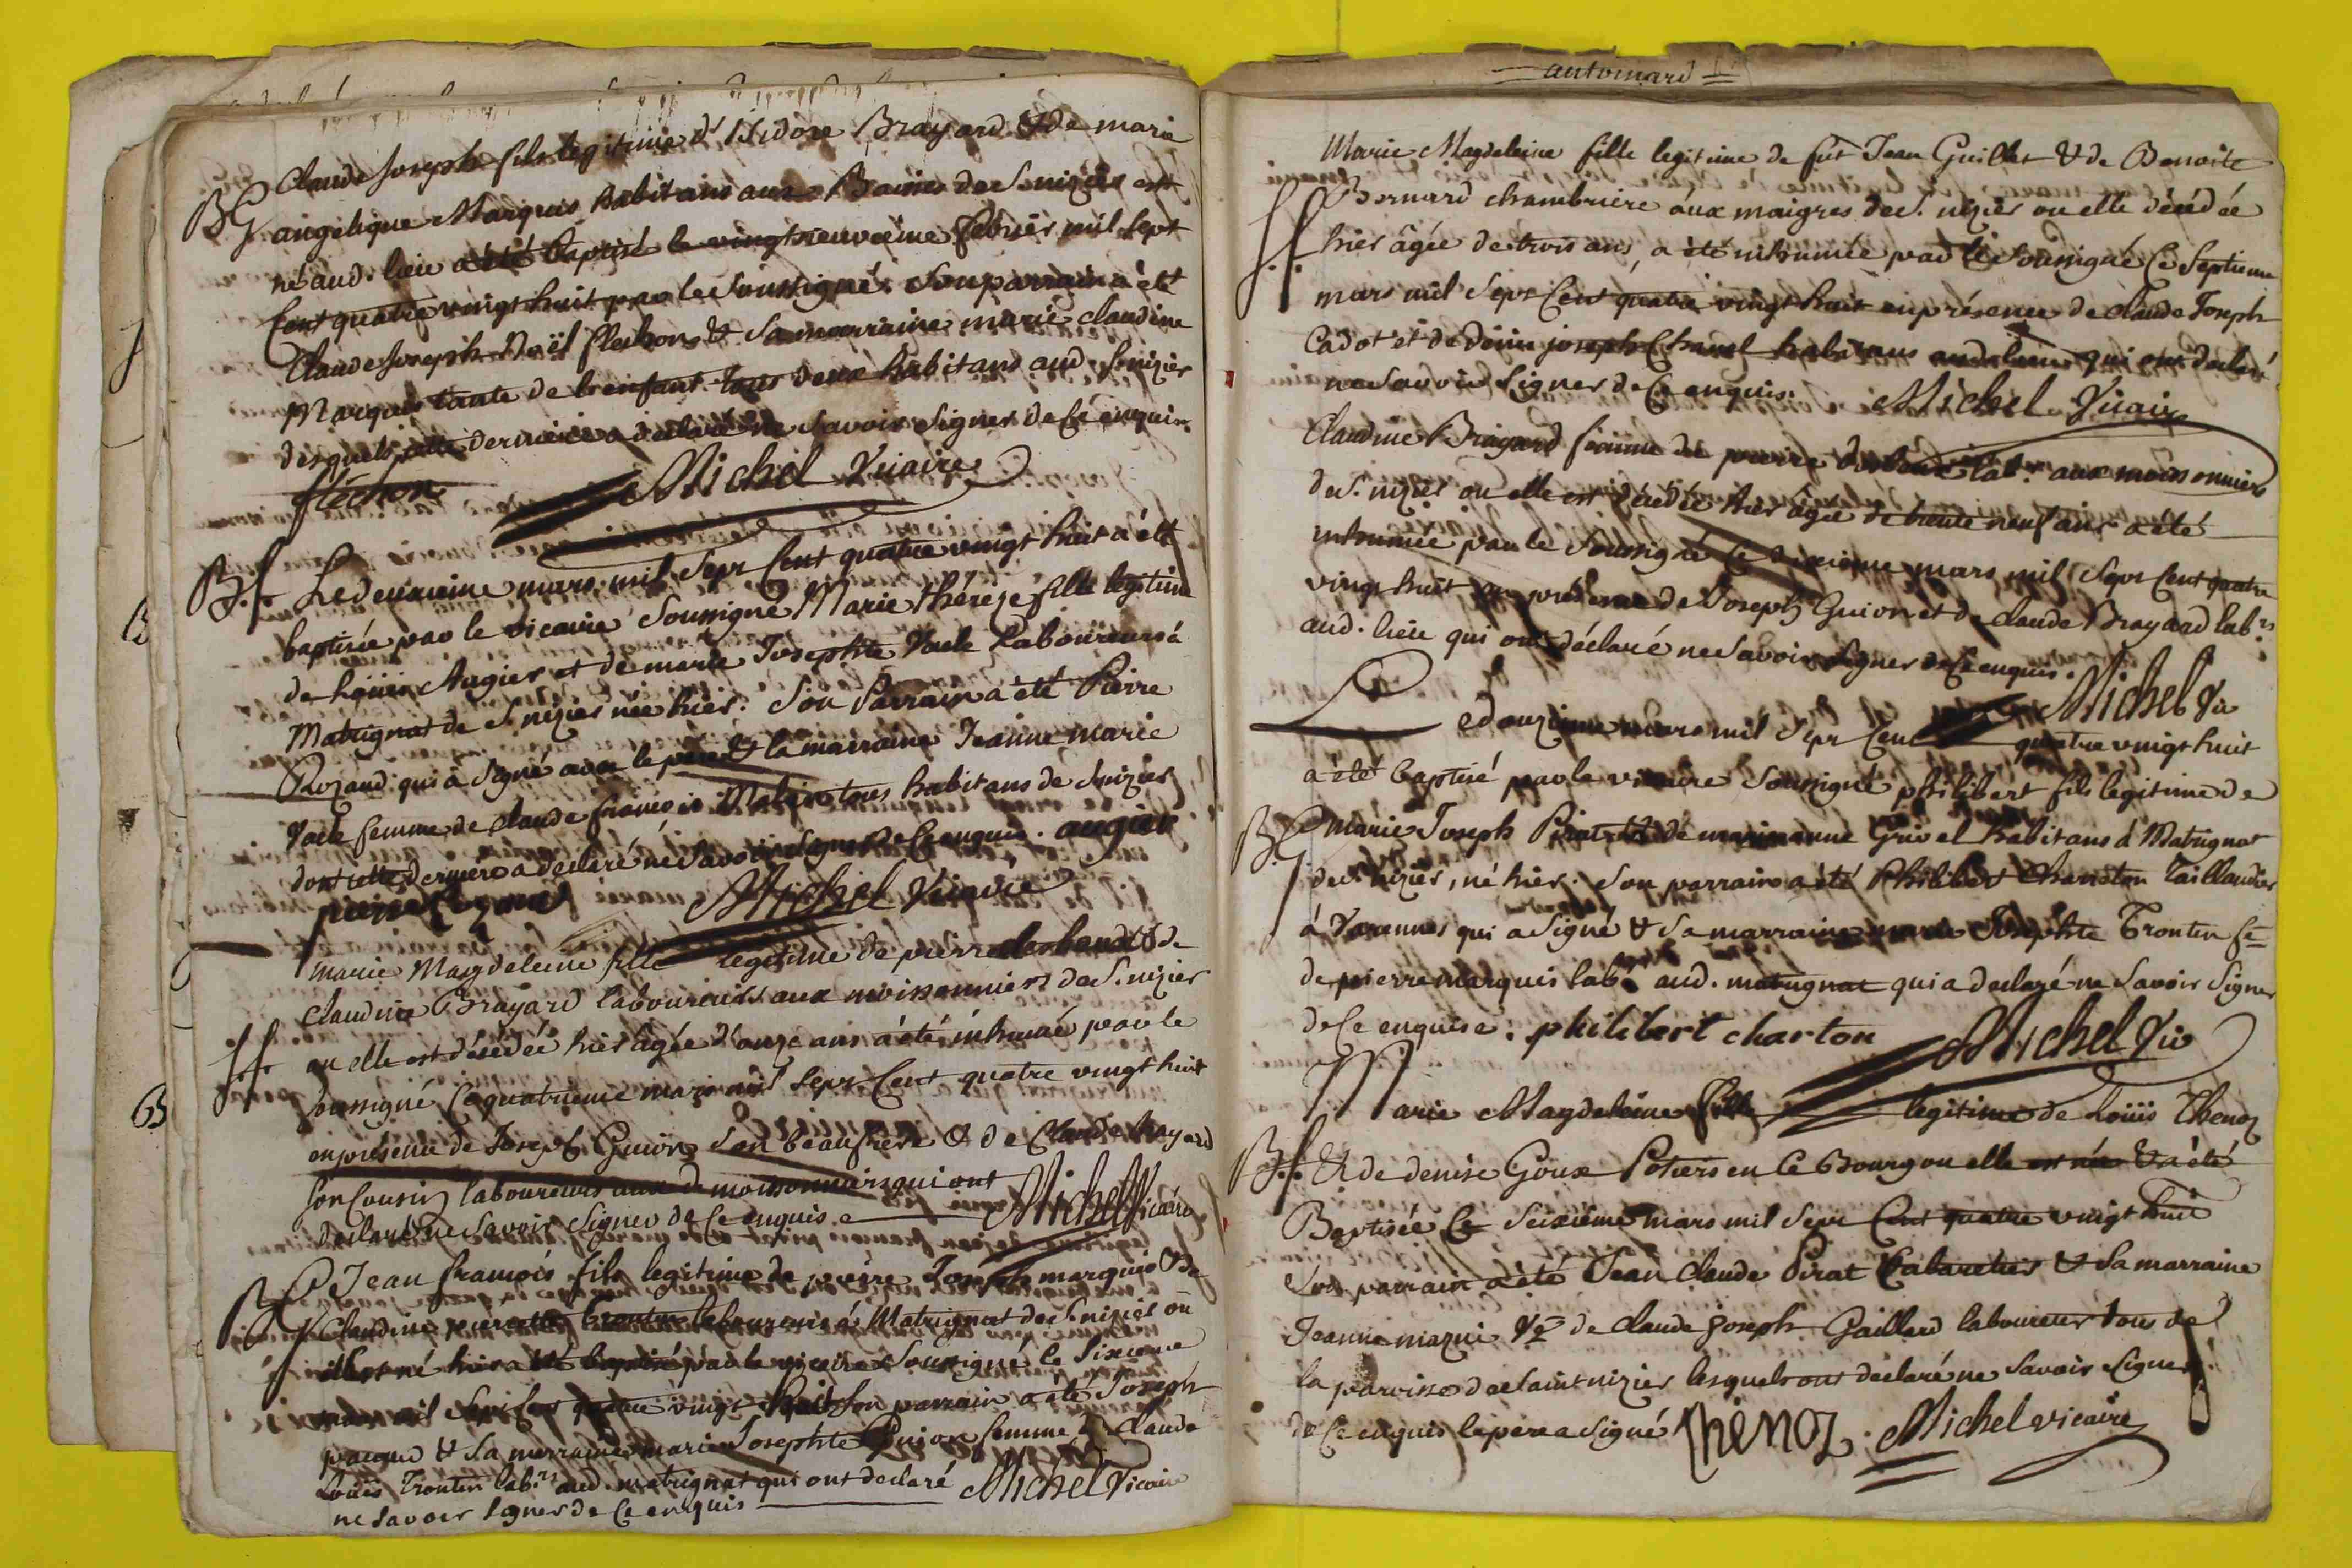 Claude Joseph fils legitime d'Isidore Brayard & de marie
BG angelique Marquis habitans aux Baisses de S. nizier est
né aud. lieu a été baptisé le vingt neuvieme febrier mil sept
Cent quatre vingt huit par le Soussigné. Son parrain a été
Claude Joseph Noël flechon & Sa marraine marie claudine
Marquis tante de l'enfant tous deux habitans aud. S. nizier
desquels cette derniere a declaré ne Savoir Signer de Ce enquise.
fléchon Michel Vicaire
B.f. Le deuxieme mars mil Sept Cent quatre vingt huit a été
baptisée par le vicaire Soussigné Marie Thérèze fille legitime
de Loüis Augier et de marie Josephte Vacle Laboureurs à
Matrignat de S. nizier née hier. Son Parrain a été Pierre
Rozand qui a Signé avec le pere & la marraine Jeanne marie
Vacle femme de claude françois tous habitans de S. nizier
dont cette derniere a declaré ne Savoir Signer de Ce enquis. augier
pierre Rozand Michel Vicaire
marie Magdeleine fille legitime de pierre desbeaux & de
claudine Brayard laboureurs aux moissonniers de S. nizier
S.f. ou elle est décédée hier âgée d'onze ans a été inhumée par le
Soussigné Ce quatrieme mars mil Sept Cent quatre vingt huit
en présence de Joseph Guion Son beaufrere & de Claude Brayard
Son Cousin laboureurs aux d. moissonniers qui ont
declaré ne Savoir Signer de Ce enquis. Michel Vicaire
BG Jean françois fils legitime de pierre Joseph marquis & de
Claudine pierrette Trontin laboureurs à Matrignat de S. nizier où
il est né hier a été baptisé par le vicaire Soussigné le Sixieme
mars mil Sept Cent quatre vingt huit Son parrain a été Joseph
pacoud & Sa marraine marie Josephte Guion femme de claude
Loüis Trontin lab.rs aud. matrignat qui ont declaré Michel Vicaire
ne Savoir Signer de Ce enquis
automard
Marie Magdeleine fille legitime de fut Jean Guillet & de Benoite
Bernard chambriere aux maigres de S. nizier ou elle décédée
S.f. hier âgée de trois ans, a été inhumée par le Soussigné Ce Septieme
mars mil Sept Cent quatre vingt huit en présence de Claude Joseph
Cadot et de Denis joseph Chanel habitans aud. lieu qui ont declaré
ne Savoir Signer de Ce enquis. Michel Vicaire
Claudine Brayard femme de pierre desbeaux lab.r aux moissonniers
de S. nizier ou elle est décédée hier âgée de trente neuf ans a été
inhumée par le Soussigné Ce mars mil Sept Cent quatre
vingt huit en présence de Joseph Guion et de claude Brayard lab.rs
aud. lieu qui ont déclaré ne Savoir Signer de Ce enquis.
Michel Vic
Le douzieme mars mil Sept Cent quatre vingt huit
a été baptisé par le vicaire Soussigné philibert fils legitime de
BG marie Joseph Pirat & de marianne Grivel habitans à Matrignat
de S. nizier, né hier. Son parrain a été Philibert Charton Taillandier
à Varennes qui a Signé & Sa marraine marie Josephte Trontin fe
de pierre marquis lab.r aud. matrignat qui a declaré ne Savoir Signer
de Ce enquise. philibert charton Michel Vic
Marie Magdeleine fille legitime de Loüis Thenoz
B.f. & de denise Goux Potiers en Ce Bourg ou elle est née & a été
Baptisée Ce Seixieme mars mil Sept Cent quatre vingt huit
Son parrain a été Jean Claude Pirat Cabaretier & Sa marraine
Jeanne mazui Ve de Claude Joseph Gaillard laboureur tous de
la paroisse de Saint nizier lesquels ont declaré ne Savoir Signer
de Ce enquis le pere a Signé Thenoz. Michel vicaire